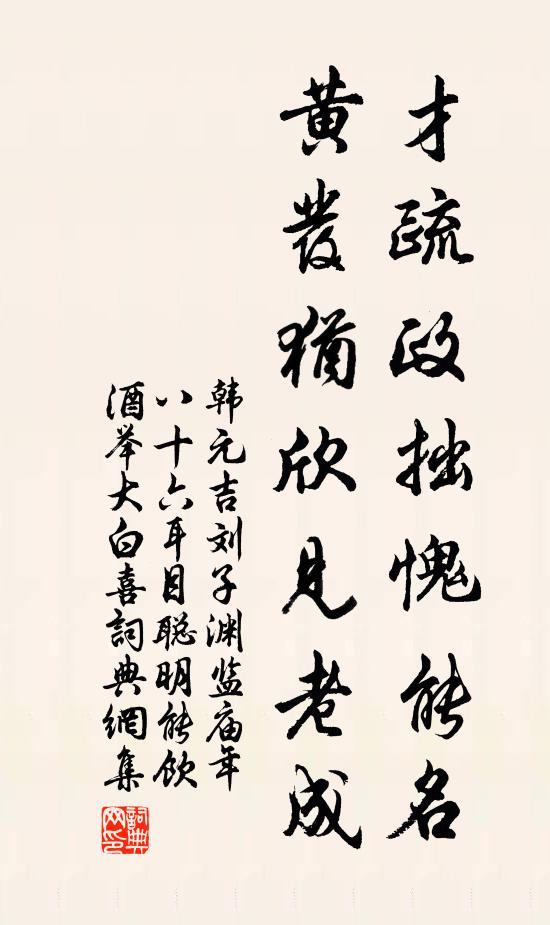 才疏政拙愧能名
黄发犹欣见老成
韩元吉刘子渊监庙年
八十六耳目聪明能饮
酒举大白喜詞典網集
詞典网印